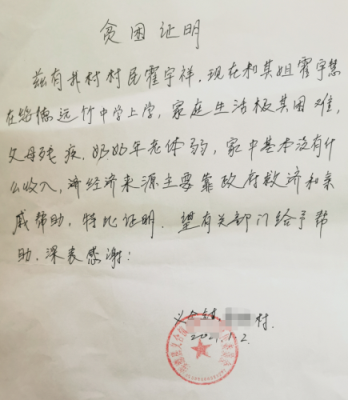 贫困证明
兹有我村村民霍宇祥，现在和其姐霍宇慧
在绥德远竹中学上学，家庭生活极其困难，
父母残疾，奶奶年老体弱，家中基本没有什
么收入，济经济来源主要靠政府救济和亲
戚帮助，特此证明，望有关部门给予帮
助，深表感谢！
义合镇 村
2021.1.2.